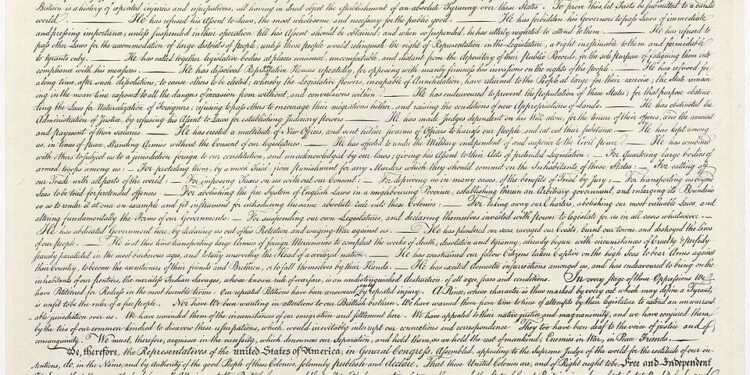 Britain is a history of repeated injuries and usurpations, all having in direct object the establishment of an absolute Tyranny over these States. To prove this, let Facts be submitted to a candid
world. He has refused his Assent to Laws, the most wholesome and necessary for the public good. He has forbidden his Governors to pass Laws of immediate
and pressing importance, unless suspended in their operation till his Assent should be obtained; and when so suspended, he has utterly neglected to attend to them. He has refused to
pass other Laws for the accommodation of large districts of people, unless those people would relinquish the right of Representation in the Legislature, a right inestimable to them and formidable
to tyrants only. He has called together legislative bodies at places unusual, uncomfortable, and distant from the depository of their Public Records, for the sole purpose of fatiguing them into
compliance with his measures. He has dissolved Representative Houses repeatedly, for opposing with manly firmness his invasions on the rights of the people. He has refused for
a long time, after such dissolutions, to cause others to be elected; whereby the Legislative powers, incapable of Annihilation, have returned to the People at large for their exercise; the State remain
ing in the mean time exposed to all the dangers of invasion from without, and convulsions within. He has endeavoured to prevent the population of these States; for that purpose obstruc
ting the Laws for Naturalization of Foreigners; refusing to pass others to encourage their migrations hither, and raising the conditions of new Appropriations of Lands. He has obstructed the
Administration of Justice, by refusing his Assent to Laws for establishing Judiciary powers. He has made Judges dependent on his Will alone, for the tenure of their offices, and the amount
and payment of their salaries. He has erected a multitude of New Offices, and sent hither swarms of Officers to harrass our people, and eat out their substance. He has kept among
us, in times of peace, Standing Armies without the Consent of our legislatures. He has affected to render the Military independent of and superior to the Civil power. He has combined
with others to subject us to a jurisdiction foreign to our constitution, and unacknowledged by our laws; giving his Assent to their Acts of pretended Legislation: For Quartering large bodies of
armed troops among us: For protecting them, by a mock Trial, from punishment for any Murders which they should commit on the Inhabitants of these States: For cutting off
our Trade with all parts of the world: For imposing Taxes on us without our Consent: For depriving us in many cases, of the benefits of Trial by Jury: For transporting us beyond
Seas to be tried for pretended offences For abolishing the free System of English Laws in a neighbouring Province, establishing therein an Arbitrary government, and enlarging its Boundaries
so as to render it at once an example and fit instrument for introducing the same absolute rule into these Colonies: For taking away our Charters, abolishing our most valuable Laws, and
altering fundamentally the Forms of our Governments: For suspending our own Legislatures, and declaring themselves invested with power to legislate for us in all cases whatsoever.
He has abdicated Government here, by declaring us out of his Protection and waging War against us. He has plundered our seas, ravaged our Coasts, burnt our towns, and destroyed the lives
of our people. He is at this time transporting large Armies of foreign Mercenaries to compleat the works of death, desolation and tyranny, already begun with circumstances of Cruelty & perfidy
scarcely paralleled in the most barbarous ages, and totally unworthy the Head of a civilized nation. He has constrained our fellow Citizens taken Captive on the high Seas to bear Arms against
their Country, to become the executioners of their friends and Brethren, or to fall themselves by their Hands. He has excited domestic insurrections amongst us, and has endeavoured to bring on the
inhabitants of our frontiers, the merciless Indian Savages, whose known rule of warfare, is an undistinguished destruction of all ages, sexes and conditions. In every stage of these Oppressions We
have Petitioned for Redress in the most humble terms: Our repeated Petitions have been answered only by repeated injury. A Prince, whose character is thus marked by every act which may define a Tyrant,
is unfit to be the ruler of a free people. Nor have We been wanting in attentions to our Brittish brethren. We have warned them from time to time of attempts by their legislature to extend an unwarrant
able jurisdiction over us. We have reminded them of the circumstances of our emigration and settlement here. We have appealed to their native justice and magnanimity, and we have conjured them
by the ties of our common kindred to disavow these usurpations, which, would inevitably interrupt our connections and correspondence They too have been deaf to the voice of justice and of
consanguinity. We must, therefore, acquiesce in the necessity, which denounces our Separation, and hold them, as we hold the rest of mankind, Enemies in War, in Peace Friends.
We, therefore, the Representatives of the united States of America, in General Congress, Assembled, appealing to the Supreme Judge of the world for the rectitude of our in
tentions, do, in the Name, and by Authority of the good People of these Colonies, solemnly publish and declare, That these United Colonies are, and of Right ought to be Free and Independent